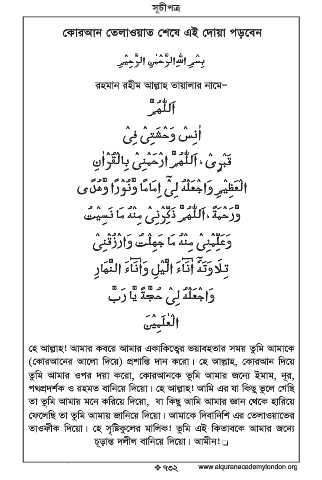 সূচীপত্র
কোরআন তেলাওয়াত শেষে এই দোয়া পড়বেন
بِسْمِ اللّٰهِ الرَّحْمٰنِ الرَّحِيْمِ
রহমান রহীম আল্লাহ তায়ালার নামে–
اَللّٰهُمَّ
اٰنِسْ وَحْشَتِىْ فِىْ
قَبْرِىْ، اَللّٰهُمَّ ارْحَمْنِىْ بِالْقُرْاٰنِ
الْعَظِيْمِ وَاجْعَلْهُ لِىْٓ اِمَامًا وَّنُوْرًا وَّهُدًى
وَّرَحْمَةً، اَللّٰهُمَّ ذَكِّرْنِىْ مِنْهُ مَا نَسِيْتُ
وَعَلِّمْنِىْ مِنْهُ مَا جَهِلْتُ وَارْزُقْنِىْ
تِلَاوَتَهٗٓ اٰنَآءَ الَّيْلِ وَاٰنَآءَ النَّهَارِ
وَاجْعَلْهُ لِىْ حُجَّةً يَّا رَبَّ
الْعٰلَمِيْنَ
হে আল্লাহ! আমার কবরে আমার একাকিত্বের ভয়াবহতার সময় তুমি আমাকে
(কোরআনের আলো দিয়ে) প্রশান্তি দান করো। হে আল্লাহ, কোরআন দিয়ে
তুমি আমার ওপর দয়া করো, কোরআনকে তুমি আমার জন্যে ইমাম, নূর,
পথপ্রদর্শক ও রহমত বানিয়ে দিয়ো। হে আল্লাহ! আমি এর যা কিছু ভুলে গেছি
তা তুমি আমার মনে করিয়ে দিয়ো, যা কিছু আমি আমার জ্ঞান থেকে হারিয়ে
ফেলেছি তা তুমি আমায় জানিয়ে দিয়ো। আমাকে দিবানিশি এর তেলাওয়াতের
তাওফীক দিয়ো। হে সৃষ্টিকুলের মালিক! তুমি এই কিতাবকে আমার জন্যে
চূড়ান্ত দলীল বানিয়ে দিয়ো। আমীন!
৭৩২ www.alquranacademylondon.org